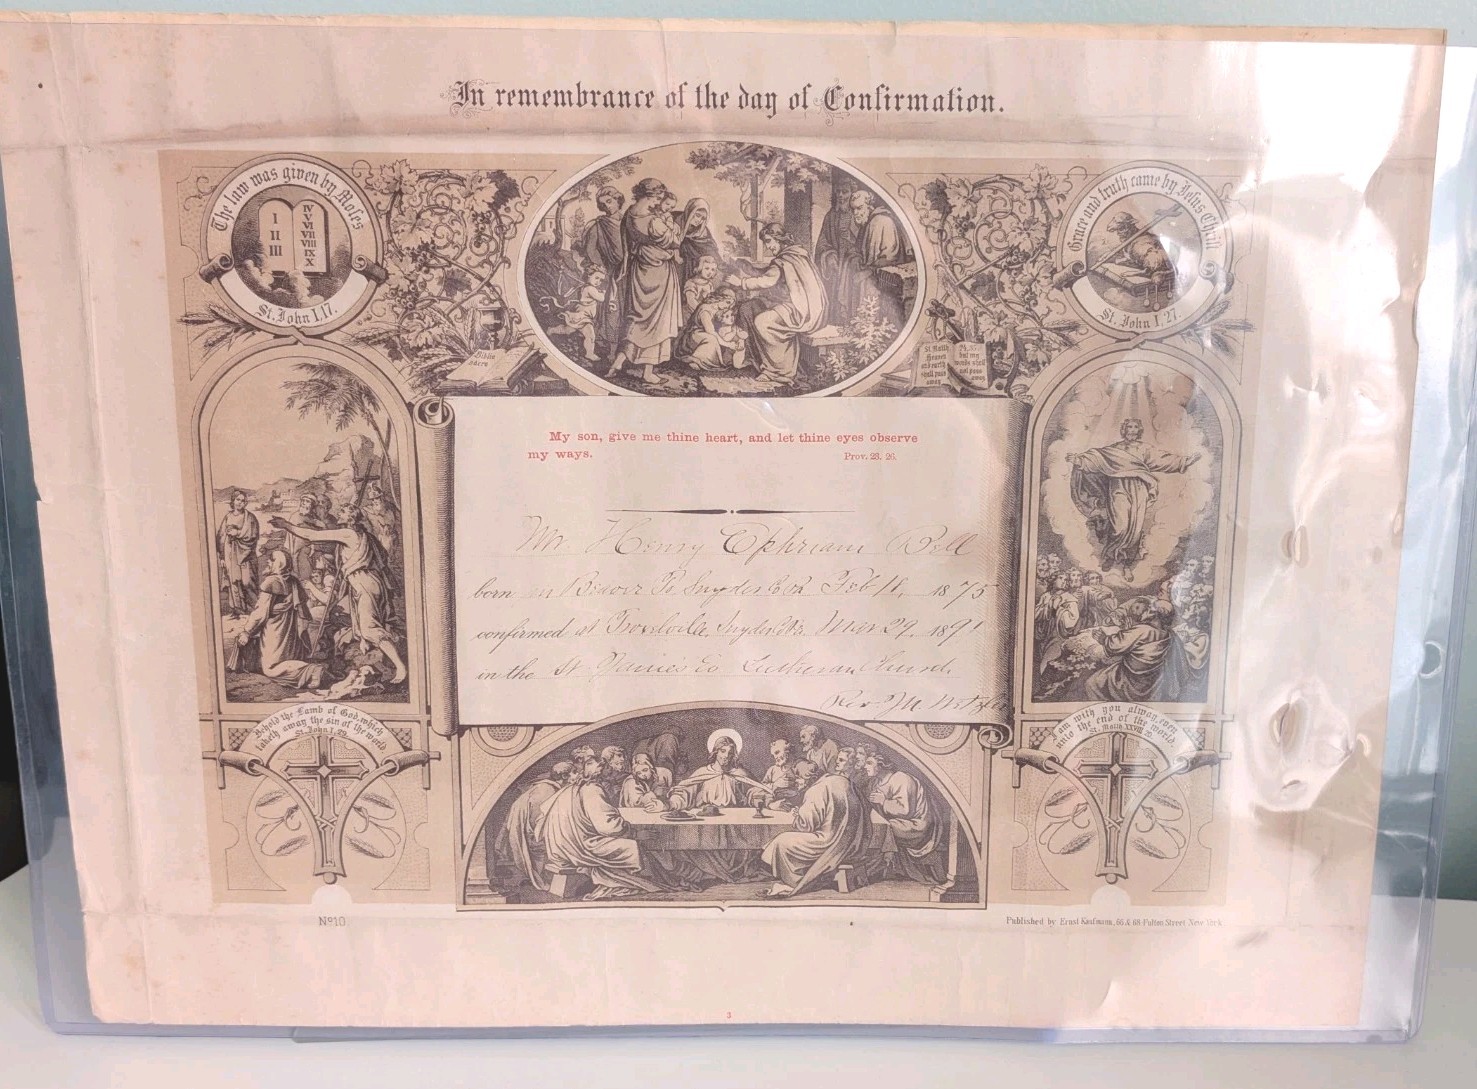 In remembrance of the day of Confirmation.
The law was given by Moses
I
II
III
IV
V
VI
VII
VIII
IX
X
St. John I, 17.
Grace and truth came by Jesus Christ
St. John I, 27.
Biblia
sacra
St. Matth
Heaven
and earth
shall pass
away
24, 35.
but my
words shall
not pass
away
My son, give me thine heart, and let thine eyes observe
my ways. Prov. 23. 26.
Mr. Henry Ephriam Bell
born in Beaver Snyder Co Pa Feb 1875
confirmed at Snyder Co Pa. Mar 29, 1891
in the St. James Ev Lutheran Church.
Rev. M.
Behold the Lamb of God, which
taketh away the sin of the world
St. John I, 29.
I am with you alway, even
unto the end of the world
St. Matth. XXVIII 20.
No 10
Published by Ernst Kaufmann, 66 & 68 Fulton Street New York
3